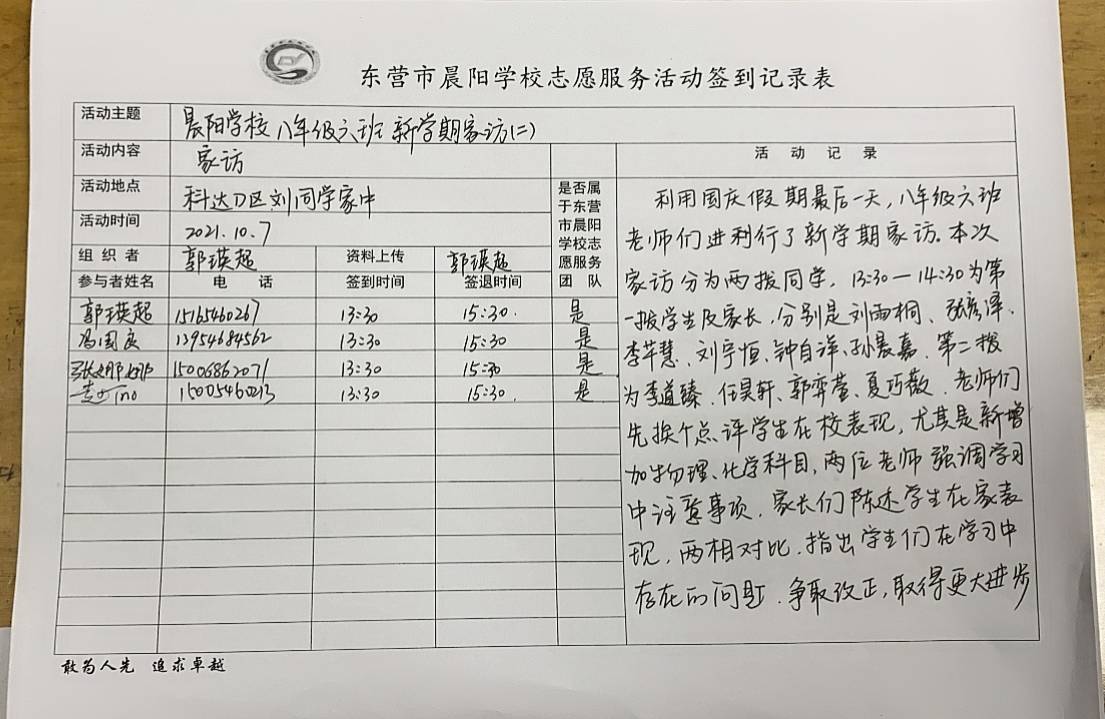 东营市晨阳学校志愿服务活动签到记录表
活动主题 晨阳学校八年级六班新学期家访(二)
活动内容 家访
活动地点 科达D区刘同学家中
活动时间 2021.10.7
组织者 郭瑛超 资料上传 郭瑛超
参与者姓名 电话 签到时间 签退时间 是否属于东营市晨阳学校志愿服务团队
郭瑛超 15165460267 13:30 15:30. 是
冯国庆 13954684562 13:30 15:30 是
张娜娜 15006862071 13:30 15:30 是
15005460213 13:30 15:30. 是
活动记录
利用国庆假期最后一天,八年级六班
老师们进利行了新学期家访.本次
家访分为两拨同学,13:30—14:30为第
一拨学生及家长,分别是刘雨桐、张彦泽、
李芊慧、刘宇恒、钟自详、孙晨嘉.第二拨
为李道臻、任昊轩、郭弈萱、夏巧薇.老师们
先挨个点评学生在校表现,尤其是新增
加物理、化学科目,两位老师强调学习
中注意事项.家长们陈述学生在家表
现,两相对比.指出学生们在学习中
存在的问题.争取改正,取得更大进步
敢为人先 追求卓越